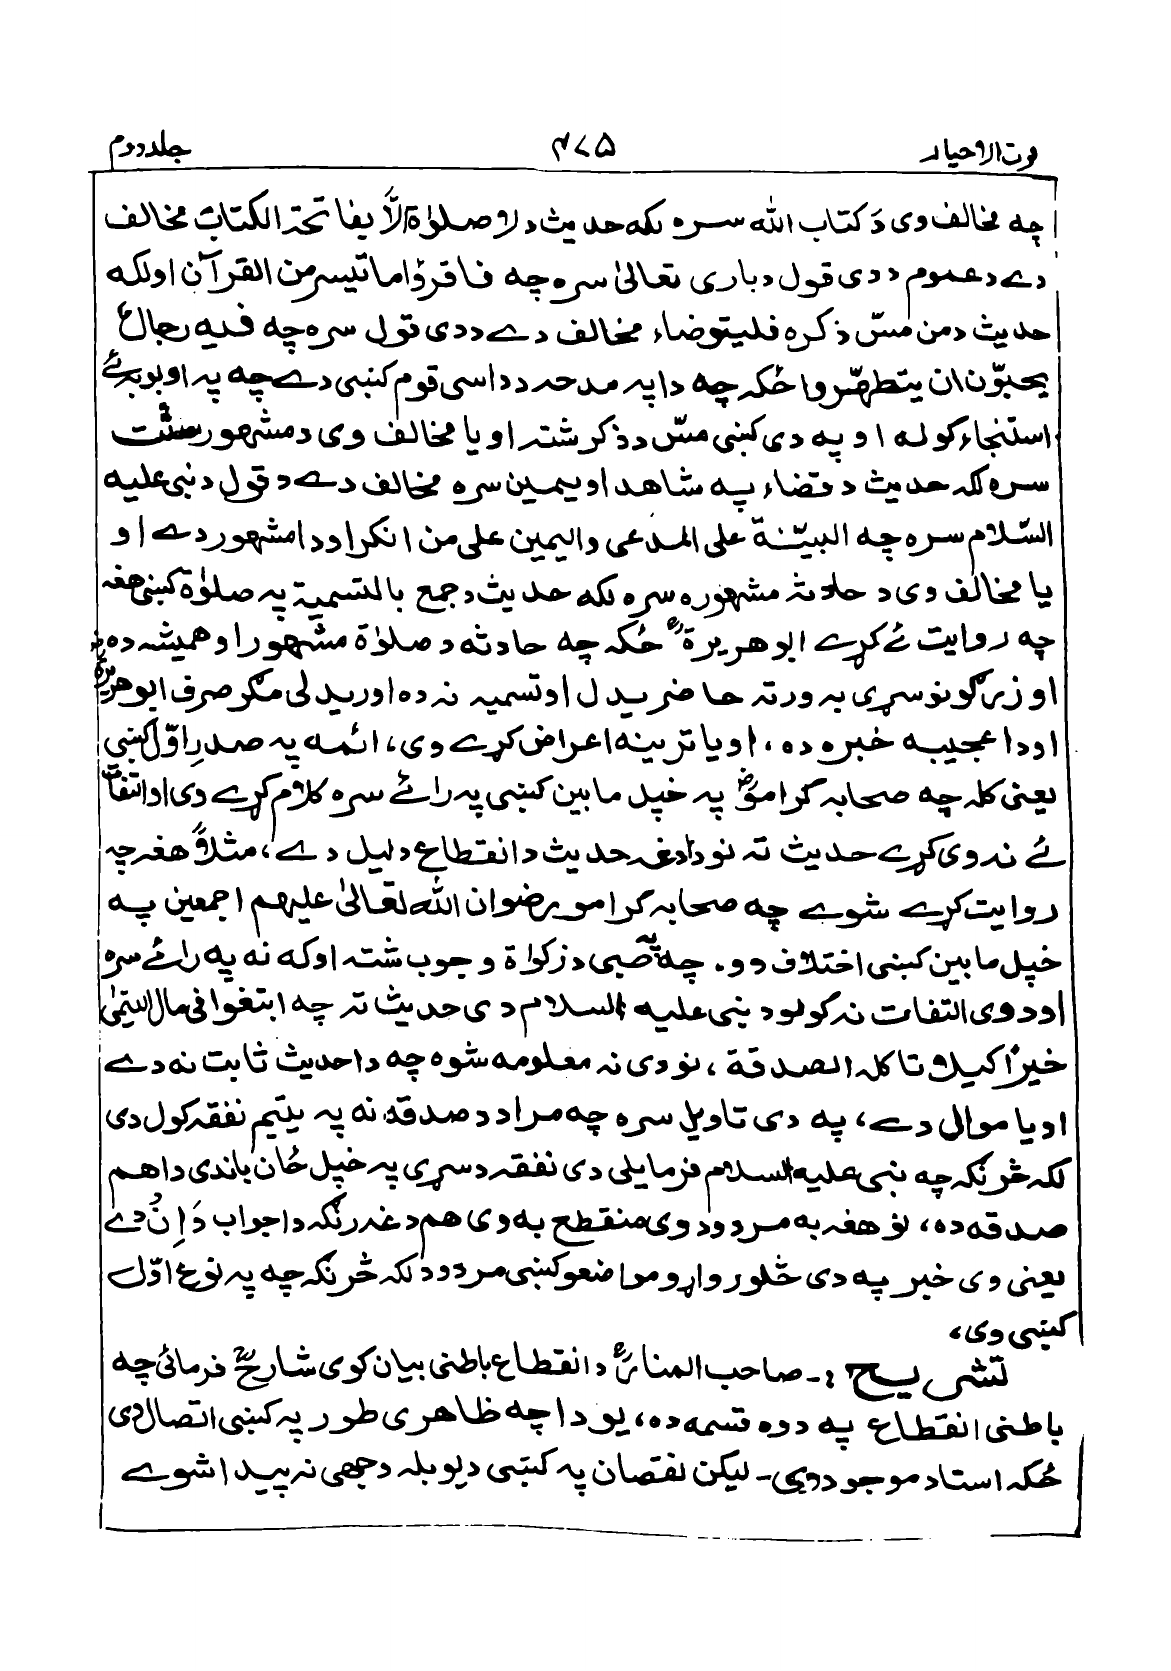 قوت الاخیار ۴۷۵ جلد دوم
چه مخالف وی دَ کتاب الله سره لکه حدیث د لا صلوٰة اِلَّا بفاتحة الکتاب مخالف
دے د عموم د دی قول د باری تعالیٰ سره چه فاقرؤا ما تیسر من القرآن او لکه
حدیث د من مسّ ذکره فلیتوضاء مخالف دے د دی قول سره چه فیه رجال
یحبوّن ان یتطهّروا ځکه چه دا په مدحه د داسی قوم کښی دے چه په اوبو به ئے
استنجاء کوله او په دی کښی مسّ د ذکر شته او یا مخالف وی د مشهور سنّت
سره لکه حدیث د قضاء په شاهد او یمین سره مخالف دے د قول د نبی علیه
السّلام سره چه البیّنة علی المدعی والیمین علی من انکر او دا مشهور دے او
یا مخالف وی د حادثه مشهوره سره لکه حدیث د جمع بالتسمیة په صلوٰة کښی هغه
چه روایت ئے کړے ابو هریرة ځکه چه حادثه د صلوٰة مشهور او همیشه ده
او زرګونو سړی به ورته حاضریدل او تسمیه نه ده اوریدلی مګر صرف ابوهریرة
او دا عجیبه خبره ده، او یا ترینه اعراض کړے وی، ائمه په صدرِ اوّل کښی
یعنی کله چه صحابه کرامو په خپل مابین کښی په رائے سره کلام کړے وی او التفات
ئے نه وی کړے حدیث ته نو دادغه حدیث د انقطاع دلیل دے، مثلاً هغه چه
روایت کړے شوے چه صحابه کرامو رضوان الله تعالیٰ علیهم اجمعین په
خپل مابین کښی اختلاف وو. چه په صبی د زکواة وجوب شته او که نه په رائے سره
او دوی التفات نه کولو د نبی علیه السلام دی حدیث ته چه ابتغوا فی مال الیتمیٰ
خیرًا کیلا تاکله الصدقة، نو دی نه معلومه شوه چه دا حدیث ثابت نه دے
او یا موال دے، په دی تاویل سره چه مراد د صدقه نه په یتیم نفقه کول دی
لکه څرنګه چه نبی علیه السلام فرمایلی دی نفقه د سړی په خپل ځان باندی دا هم
صدقه ده، نو هغه به مردود وی منقطع به وی هم دغه رنګه دا جواب دَ اِنُ دے
یعنی وی خبر په دی څلور واړو مواضعو کښی مردود لکه څرنګه چه په نوع اوّل
کښی وی،
تشریح :۔ صاحب المنار د انقطاع باطنی بیان کوی شارح فرمائی چه
باطنی انقطاع په دوه قسمه ده، یو دا چه ظاهری طور په کښی اتصال وی
ځکه استاد موجود وی۔ لیکن نقصان په کښی د یو بله وجهی نه پیدا شوے